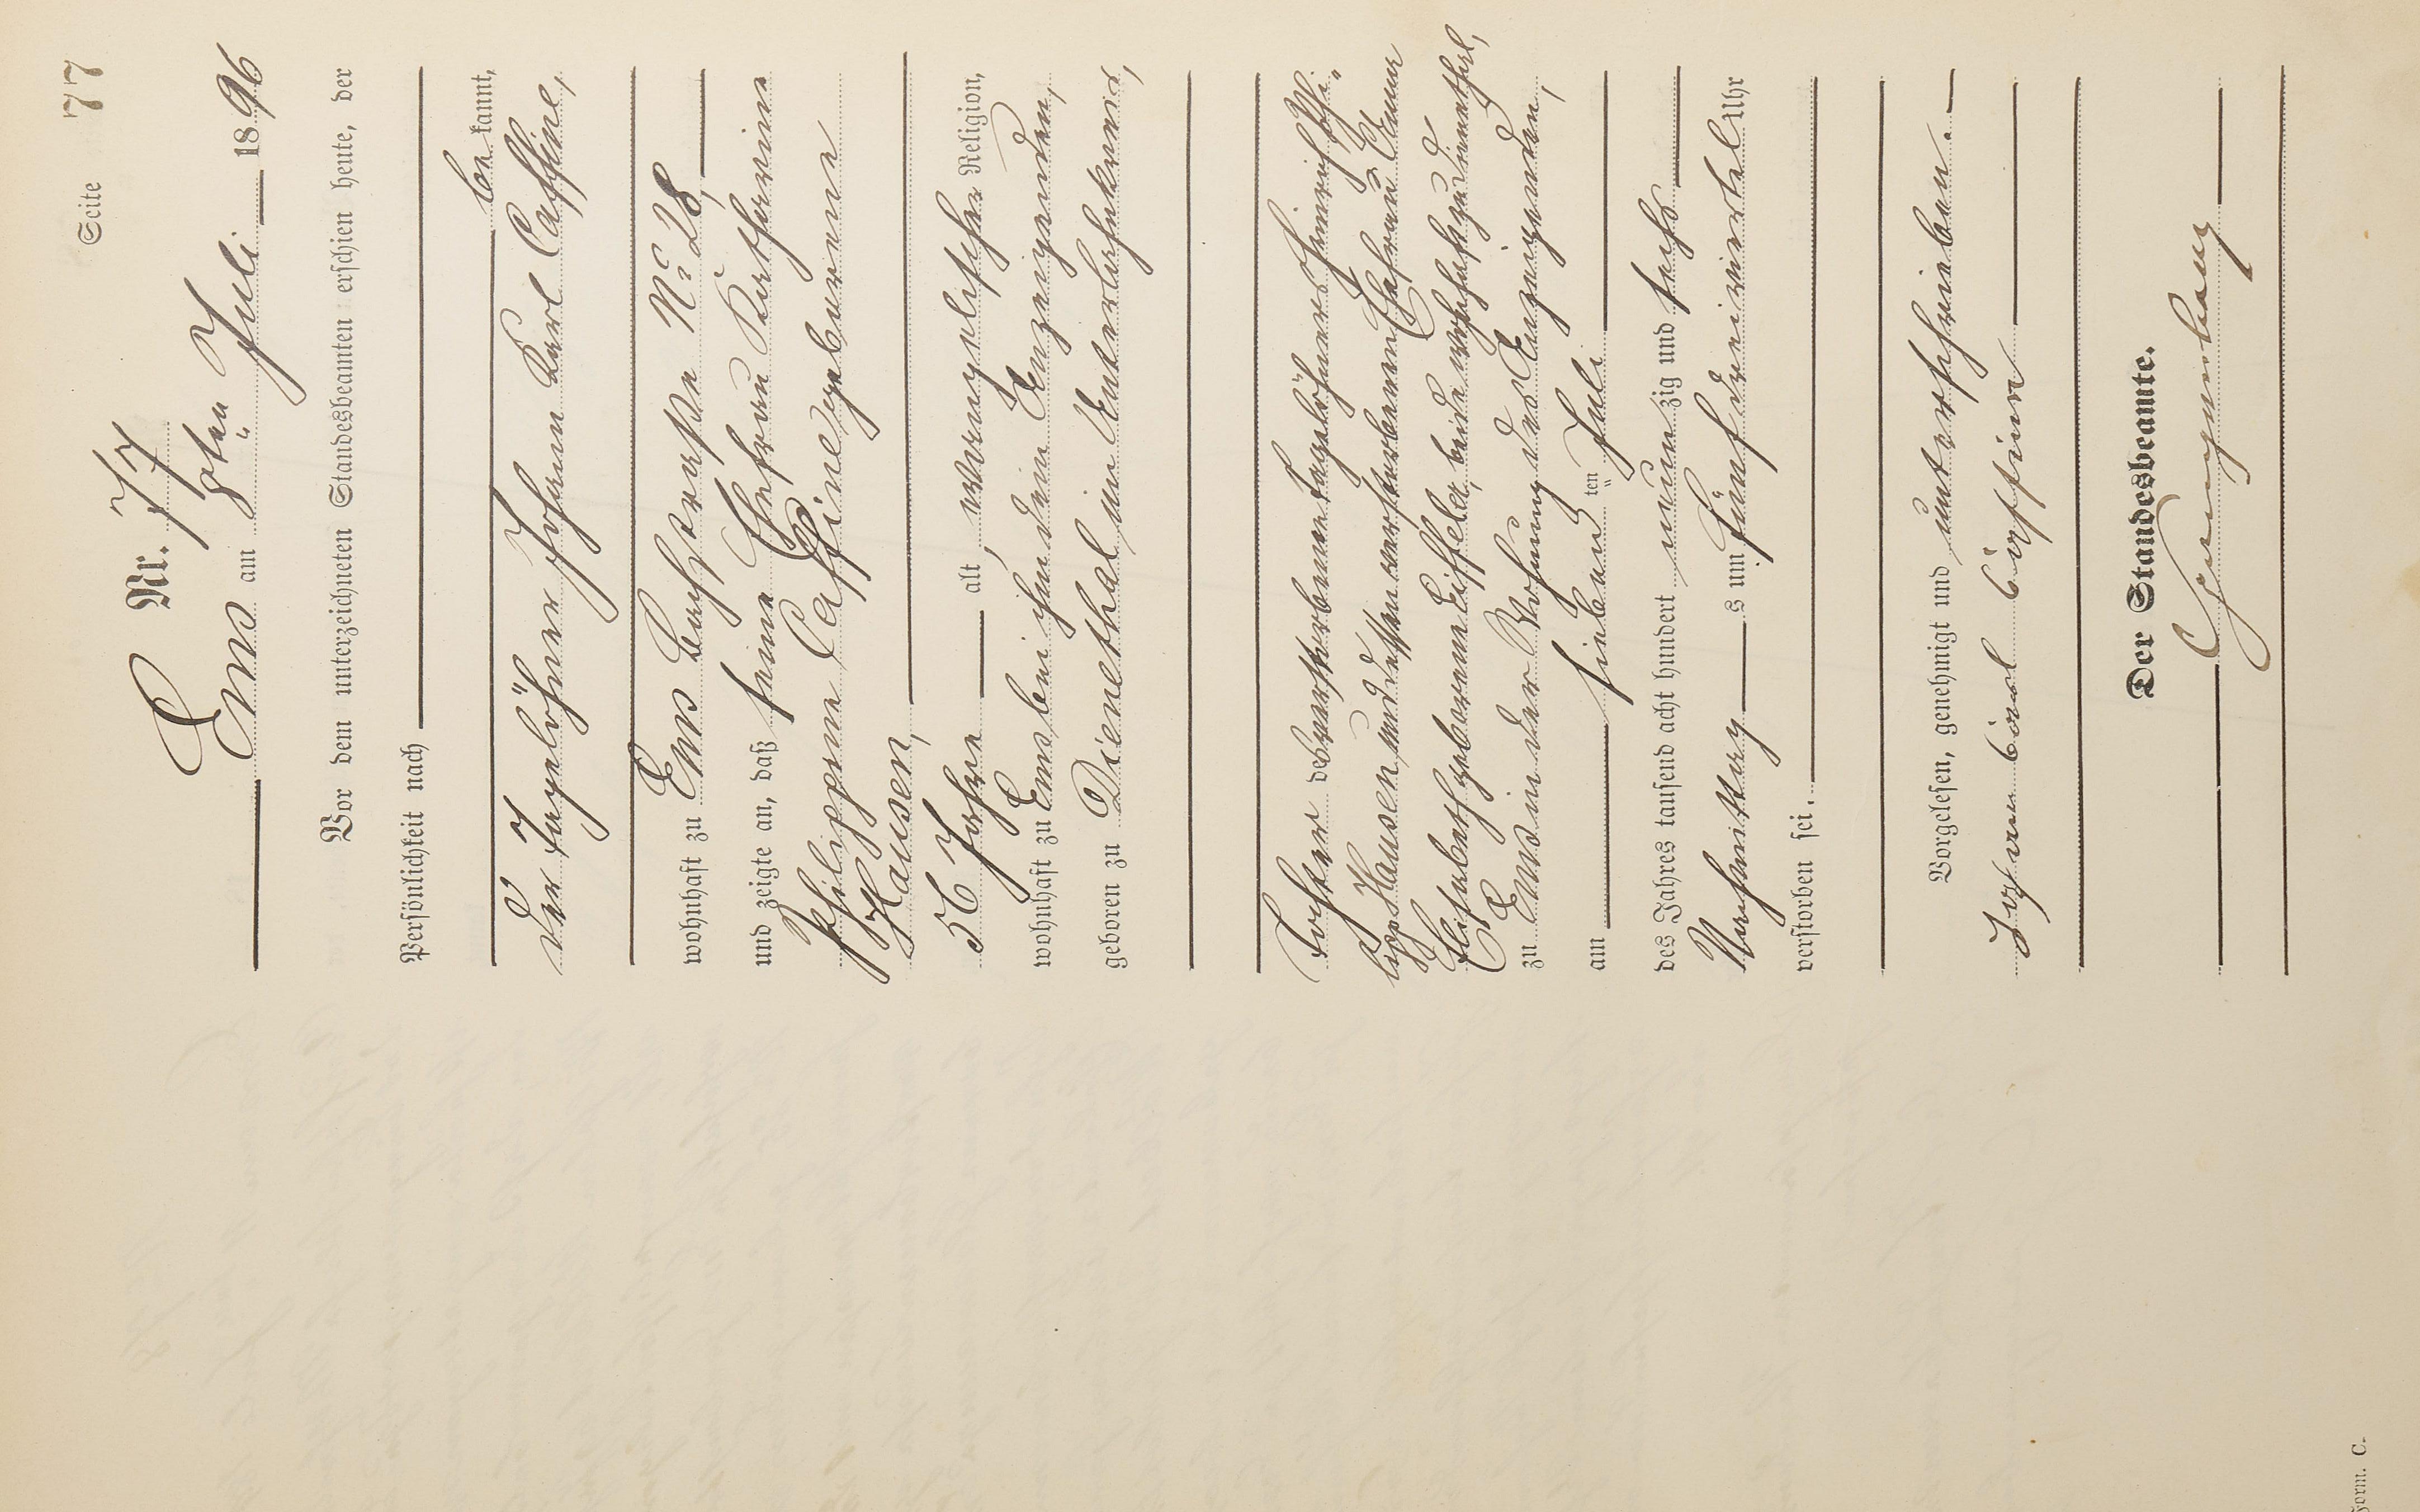 Seite 77
Nr. 77
Ems am 8ten Juli 1896
Vor dem unterzeichneten Standesbeamten erschien heute, der
Persönlichkeit nach
be kannt,
der Tagelöhner Johann Karl Caffine,
wohnhaft zu Ems Bachstraße No 28,
und zeigte an, daß seine Ehefrau Katharina
Philippine Caffine geborene
Hausen,
56 Jahre alt, evangelischer Religion,
wohnhaft zu Ems bei ihm dem Anzeigenden,
geboren zu Dienethal im Unterlahnkreis,
Tochter des verstorbenen Tagelöhners Heinrich Phi-
lipp Hausen und dessen verstorbenen Ehefrau Anna
Elisabeth geborene Eiffeler, beide wohnhaft zu Dienethal,
zu Ems in der Wohnung des Anzeigenden,
am siebenten Juli
des Jahres tausend acht hundert neun zig und sechs
Nachmittag s um fünf dreiviertel Uhr
verstorben sei.
Vorgelesen, genehmigt und unterschrieben.
Johann Carl Caffine
Der Standesbeamte.
Form. C.